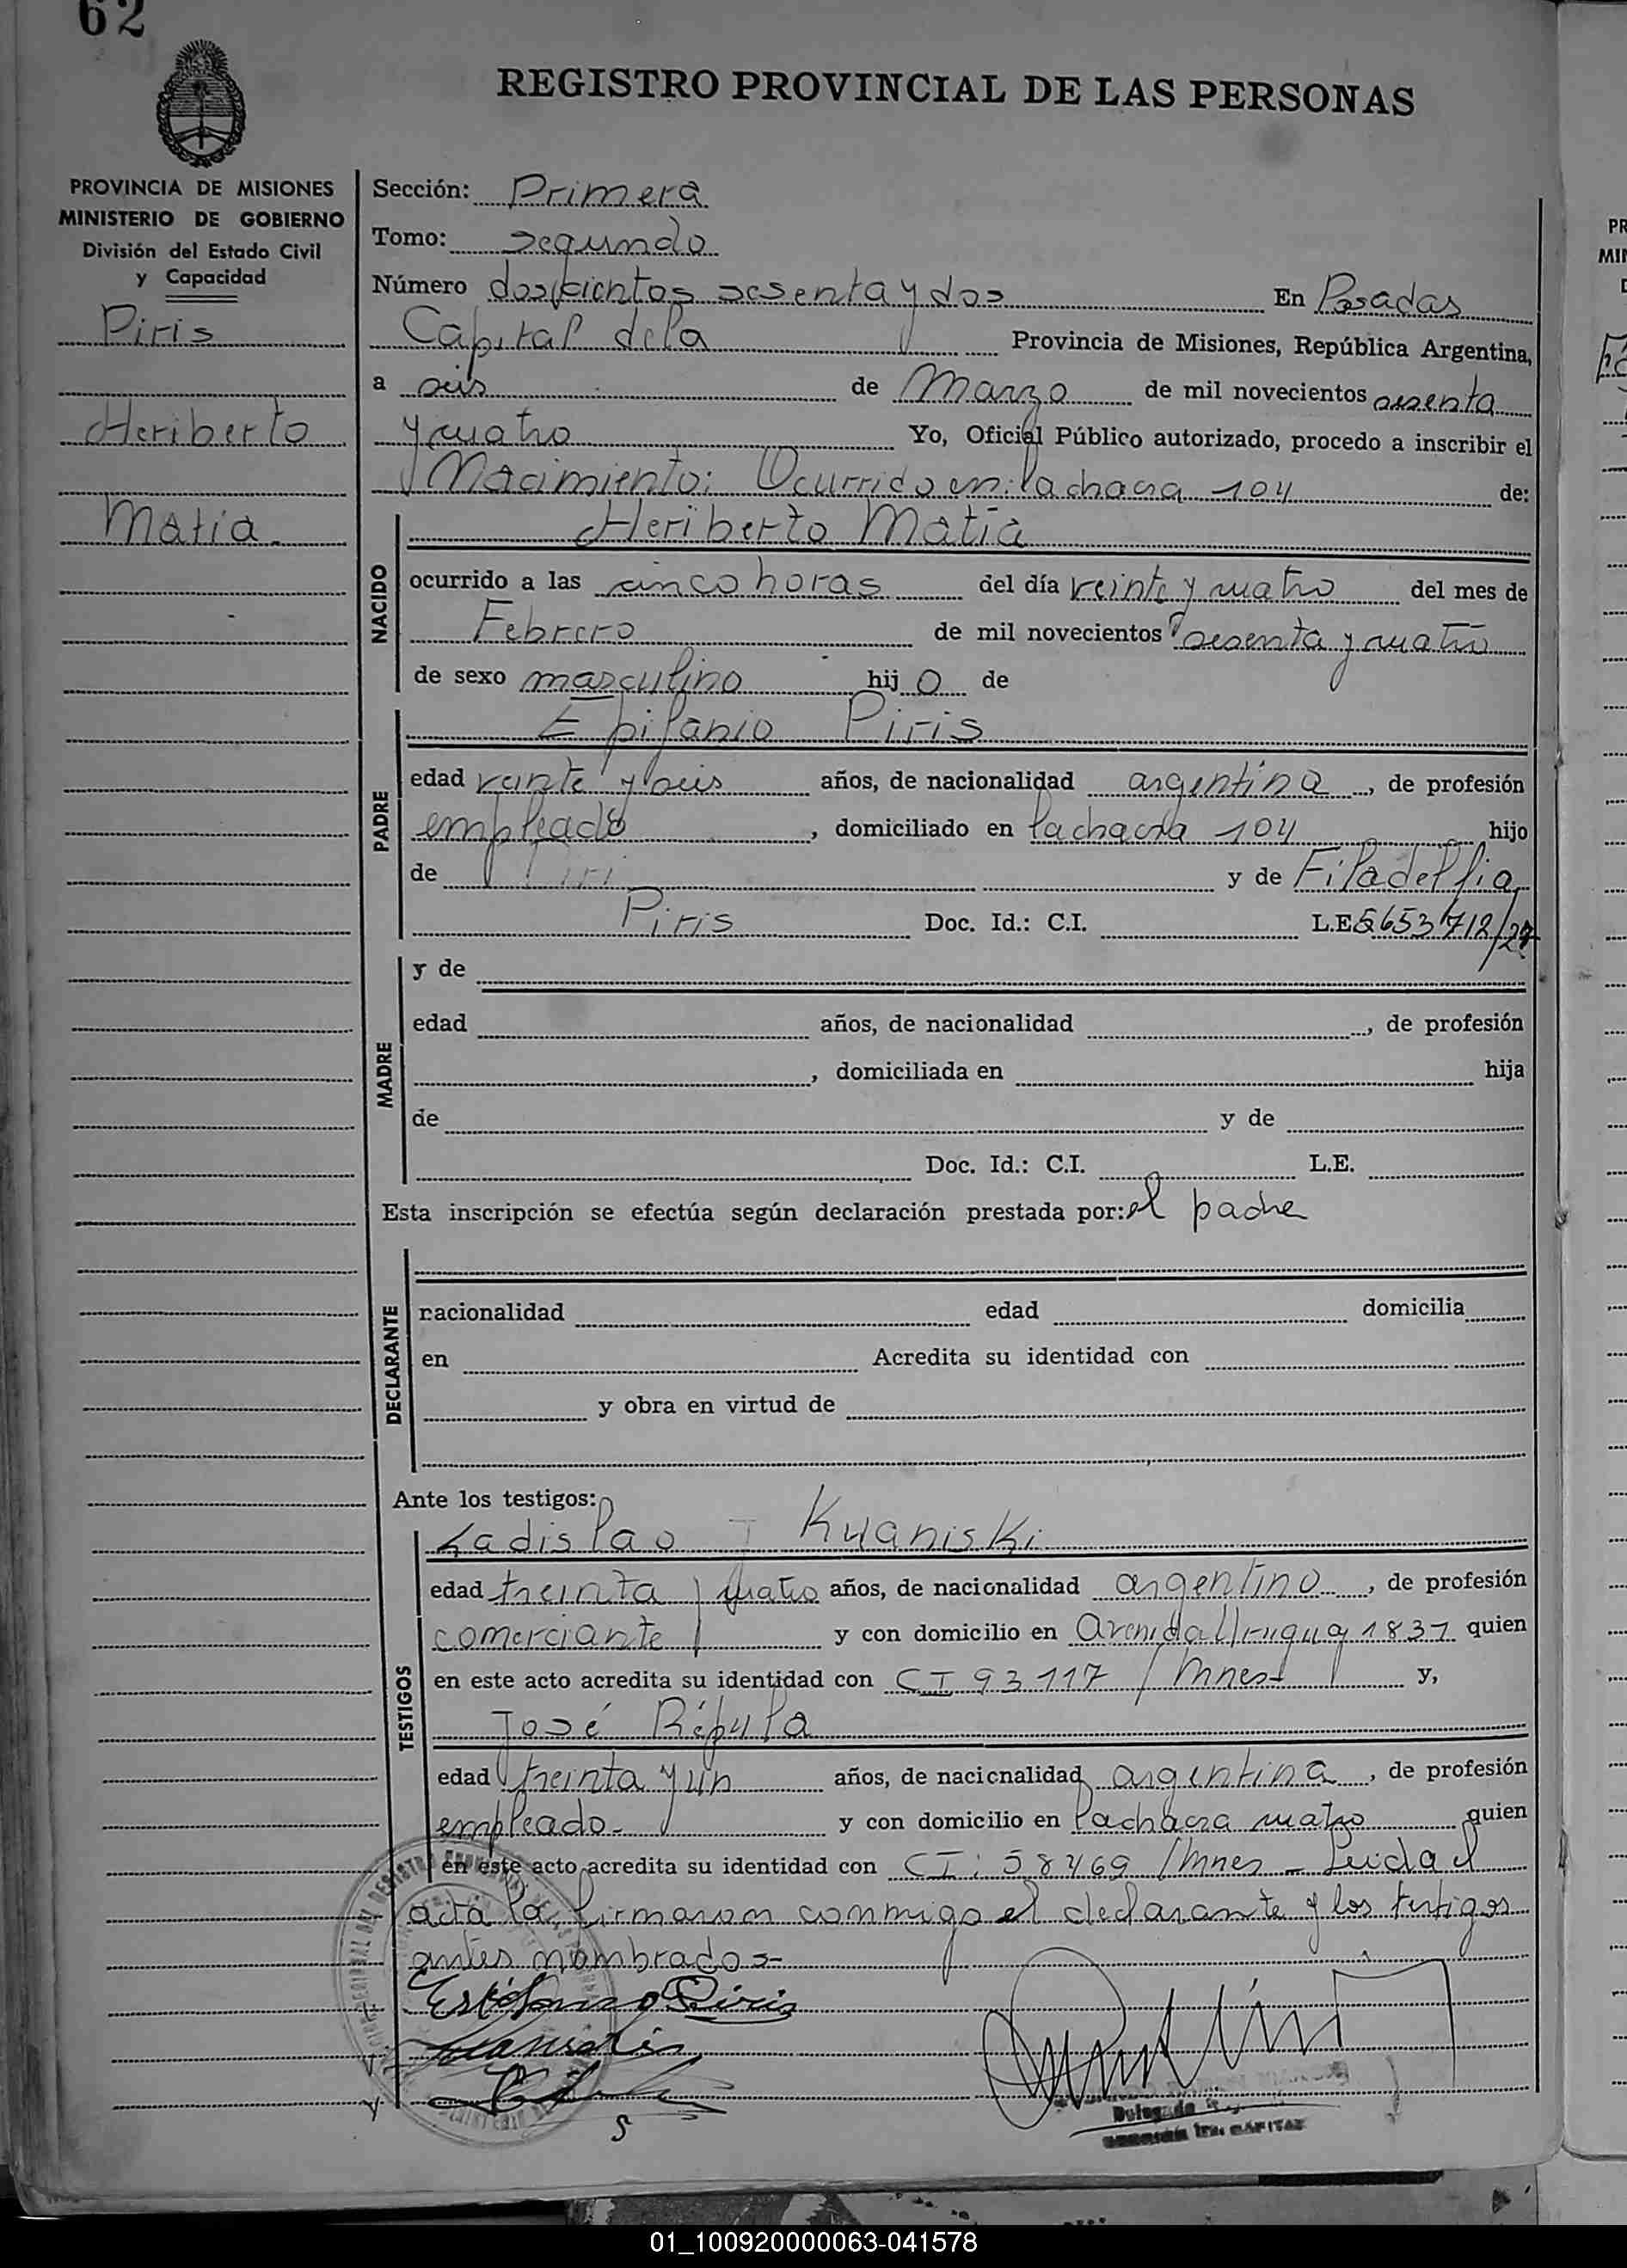 62
REGISTRO PROVINCIAL DE LAS PERSONAS
PROVINCIA DE MISIONES
MINISTERIO DE GOBIERNO
División del Estado Civil
y Capacidad
Piris
Heriberto
Matia.
Sección: Primera
Tomo: segundo
Número doscientos sesenta y dos En Posadas
Capital dela Provincia de Misiones, República Argentina,
a seis de Marzo de mil novecientos sesenta
y cuatro Yo, Oficial Público autorizado, procedo a inscribir el
Nacimiento: Ocurrido en: la chacra 104 de:
NACIDO
Heriberto Matia
ocurrido a las cinco horas del día veinte y cuatro del mes de
Febrero de mil novecientos sesenta y cuatro
de sexo masculino hij o de
PADRE
Epifanio Piris
edad veinte y seis años, de nacionalidad argentina, de profesión
empleado, domiciliado en la chacra 104 hijo
de y de Filadelfia
Piris Doc. Id.: C.I. L.E. 5653712/27
MADRE
y de
edad años, de nacionalidad , de profesión
, domiciliada en hija
de y de
Doc. Id.: C.I. L.E.
Esta inscripción se efectúa según declaración prestada por: el padre
DECLARANTE
nacionalidad edad domicilia
en Acredita su identidad con
y obra en virtud de
Ante los testigos:
TESTIGOS
Ladislao J Kuaniski
edad treinta y cuatro años, de nacionalidad argentino, de profesión
comerciante y con domicilio en Avenida Uruguay 1837 quien
en este acto acredita su identidad con CI 93117 / Mnes- y,
José Répula
edad treinta y un años, de nacionalidad argentina, de profesión
empleado- y con domicilio en la chacra cuatro quien
en este acto acredita su identidad con CI: 58469 /Mnes - Leida el
acta la firmaron conmigo el declarante y los testigos
antes nombrados-
Piris
Delegado
SECCION 1ra. CAPITAL
01_100920000063-041578